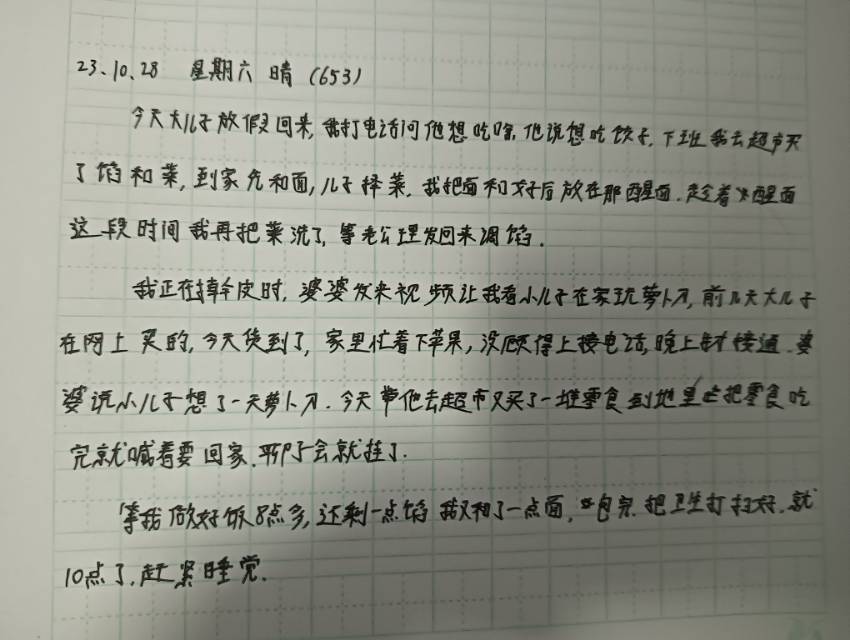 23.10.28 星期六 晴 (653)
今天大儿子放假回来,我打电话问他想吃啥,他说想吃饺子,下班我去超市买
了馅和菜,到家先和面,儿子择菜,我把面和好后放在那醒面.趁着醒面
这段时间我再把菜洗了,等老公理发回来调馅.
我正在擀皮时,婆婆发来视频让我看小儿子在家玩萝卜刀,前几天大儿子
在网上买的,今天货到了,家里忙着下苹果,没顾得上接电话,晚上才接通.婆
婆说小儿子想了一天萝卜刀.今天带他去超市又买了一堆零食到地里把零食吃
完就喊着要回家.聊了会就挂了.
等我做好饭8点多,还剩一点馅我又和了一点面,包完.把卫生打扫好.就
10点了,赶紧睡觉.